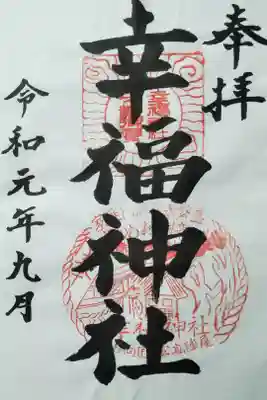 奉拝
幸福神社
令和元年九月